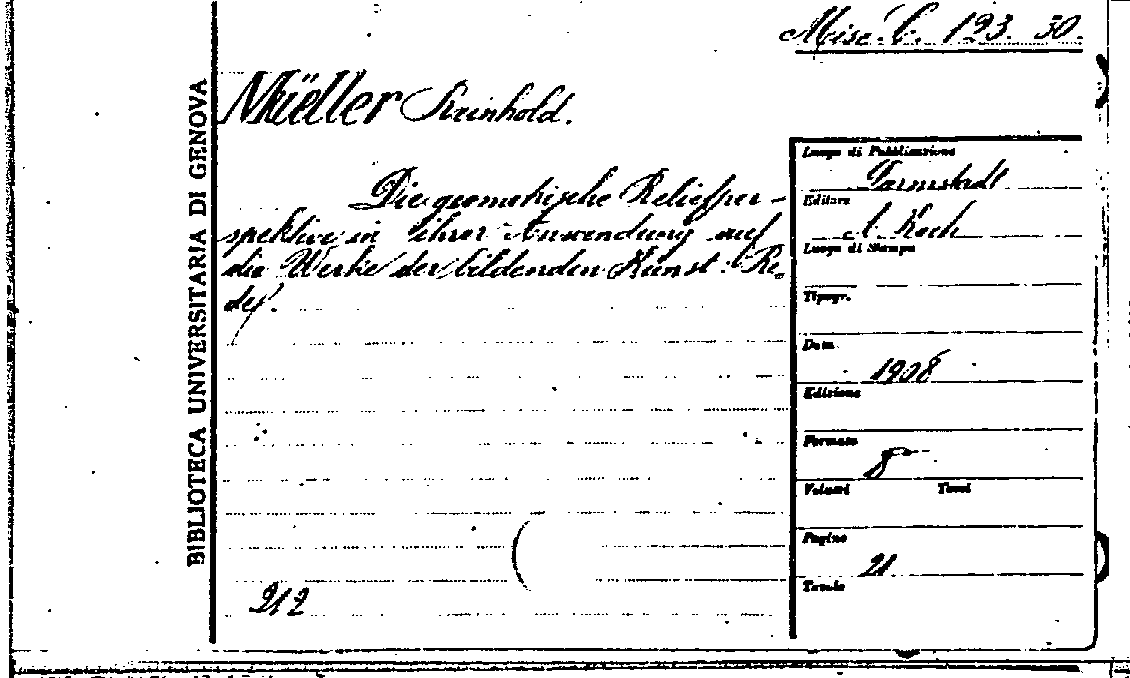 Misc. C. 123. 30.
BIBLIOTECA UNIVERSITARIA DI GENOVA
Müller Reinhold.
Die geometrische Reliefper-
spektive in ihrer Anwendung auf
die Werke der bildenden Kunst: Re-
de.
Luogo di Pubblicazione
Darmstadt
Editore
A. Koch
Luogo di Stampa
Tipogr.
Data
1908
Edizione
Formato
8°
Volumi Tomi
Pagine
21
Tavole
212